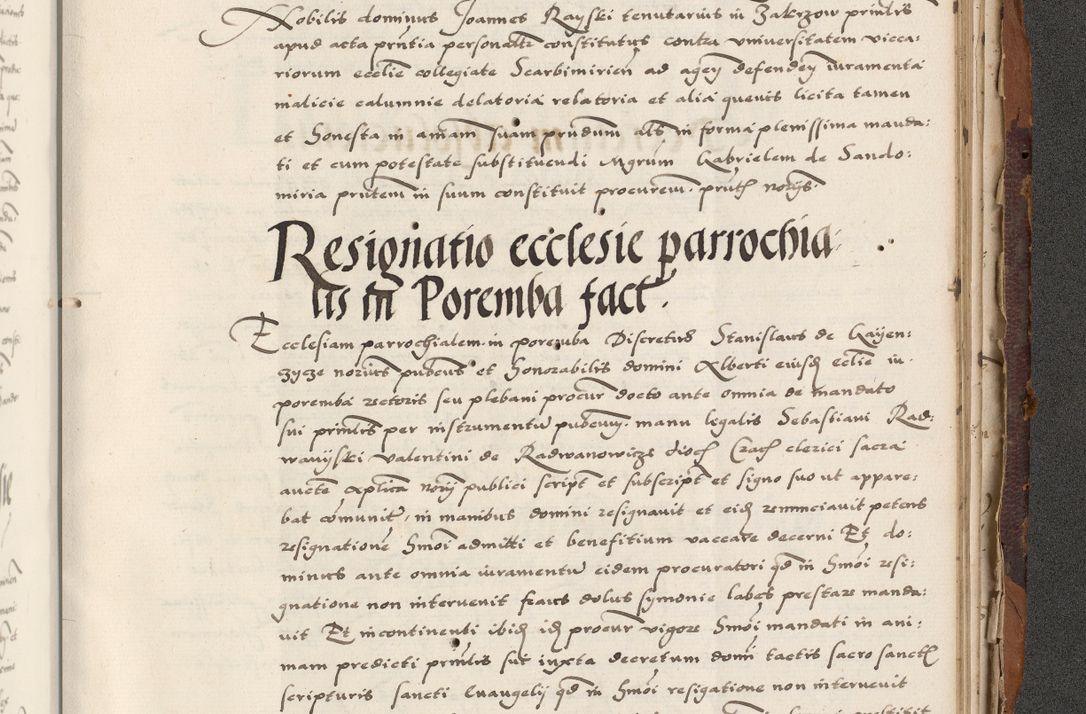 Nobilis dominus Joannes Rayski tenutarius in Zakrzow prinlis
apud acta pntia personalr constitutus contra universitatem vicca:
riorum ecclie collegiate Scarbimirien ad agen defenden iuramenta
malicie calumnie delatoria relatoria et alia quevis licita tamen
et honesta in amam suam prndum alr in forma plenissima manda:
ti et cum potestate substituendi Mgrum Gabrielem de Sando:
miria prntem in suum constituit procurem. prntß norijs.
Resignatio ecclesie parrochia:
lis in Poremba fact.
Ecclesiam parrochialem in poremba Discretus Stanislaus de Gayen:
zycze norius publicus et honorabilis domini Alberti eiusd ecclie in
poremba rectoris seu plebani procur docto ante omnia de mandato
sui prinlis per instrumentum publicum manu legalis Sebastiani Rad:
wanijski valentini de Radwanowicze dioc Crac clerici sacra
aucte aplica norij publici script et subscript et signo suo ut appare:
bat comuniter, in manibus domini resignavit et eid renunciavit petens
resignatione hmoi admitti et benefitium vaccare decerni Et do:
minus ante omnia iuramentum eidem procuratori qd in hmoi resi:
gnatione non intervenit fraus dolus symonie labes prestare manda:
vit Et incontinenti ibid id procur vigore hmoi mandati in ani:
mam predicti prinlis sui iuxta decretum domi tactis sacro sanctß
scripturis sancti Evangelij qd in hmoi resigatione non intervenit